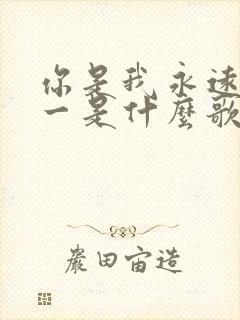 你是我永遠
一是什麼歌
嚴田宙造